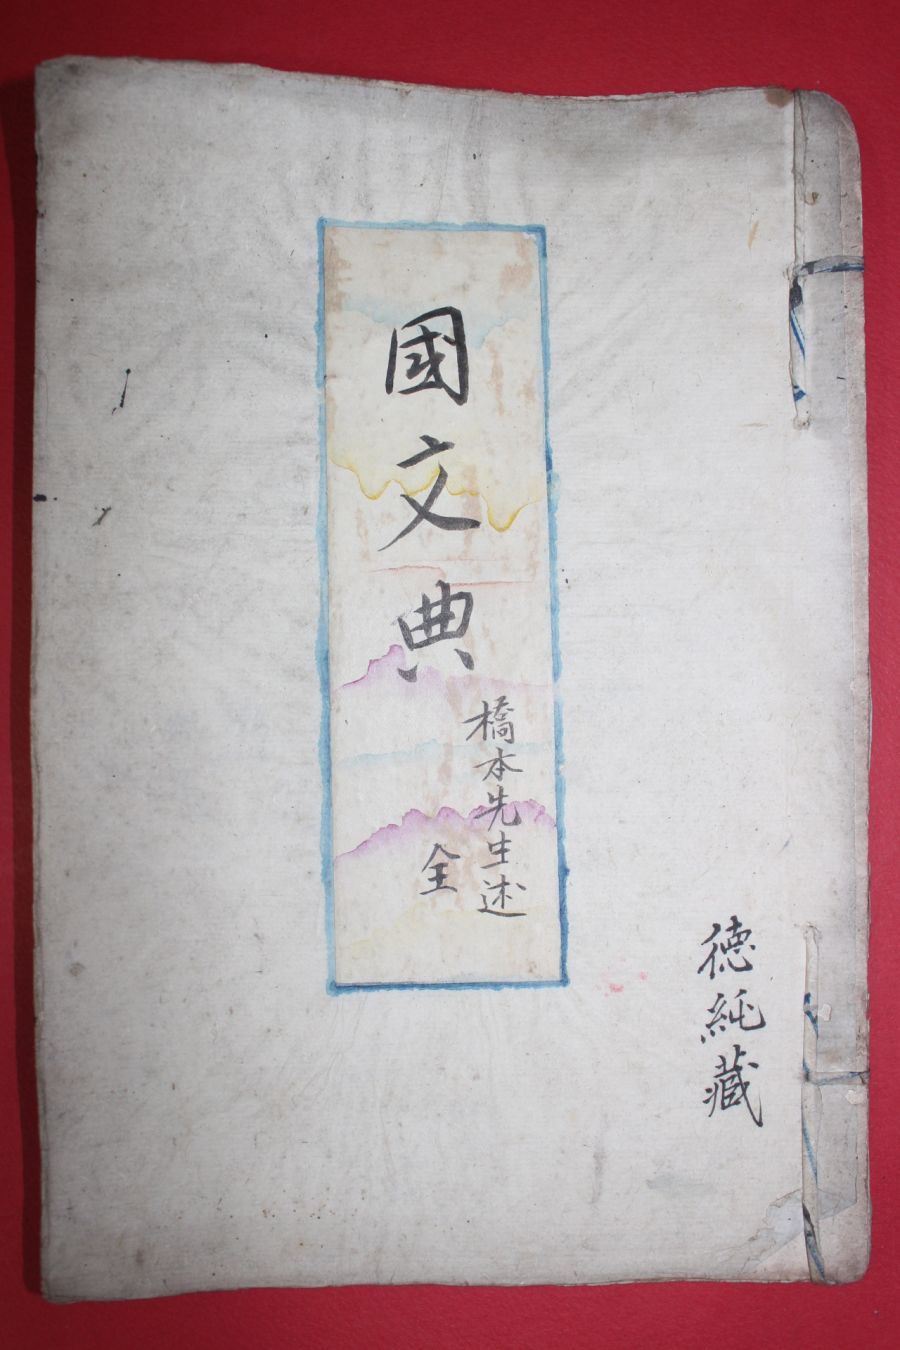 國文典
橋本先生述
全
徳純藏